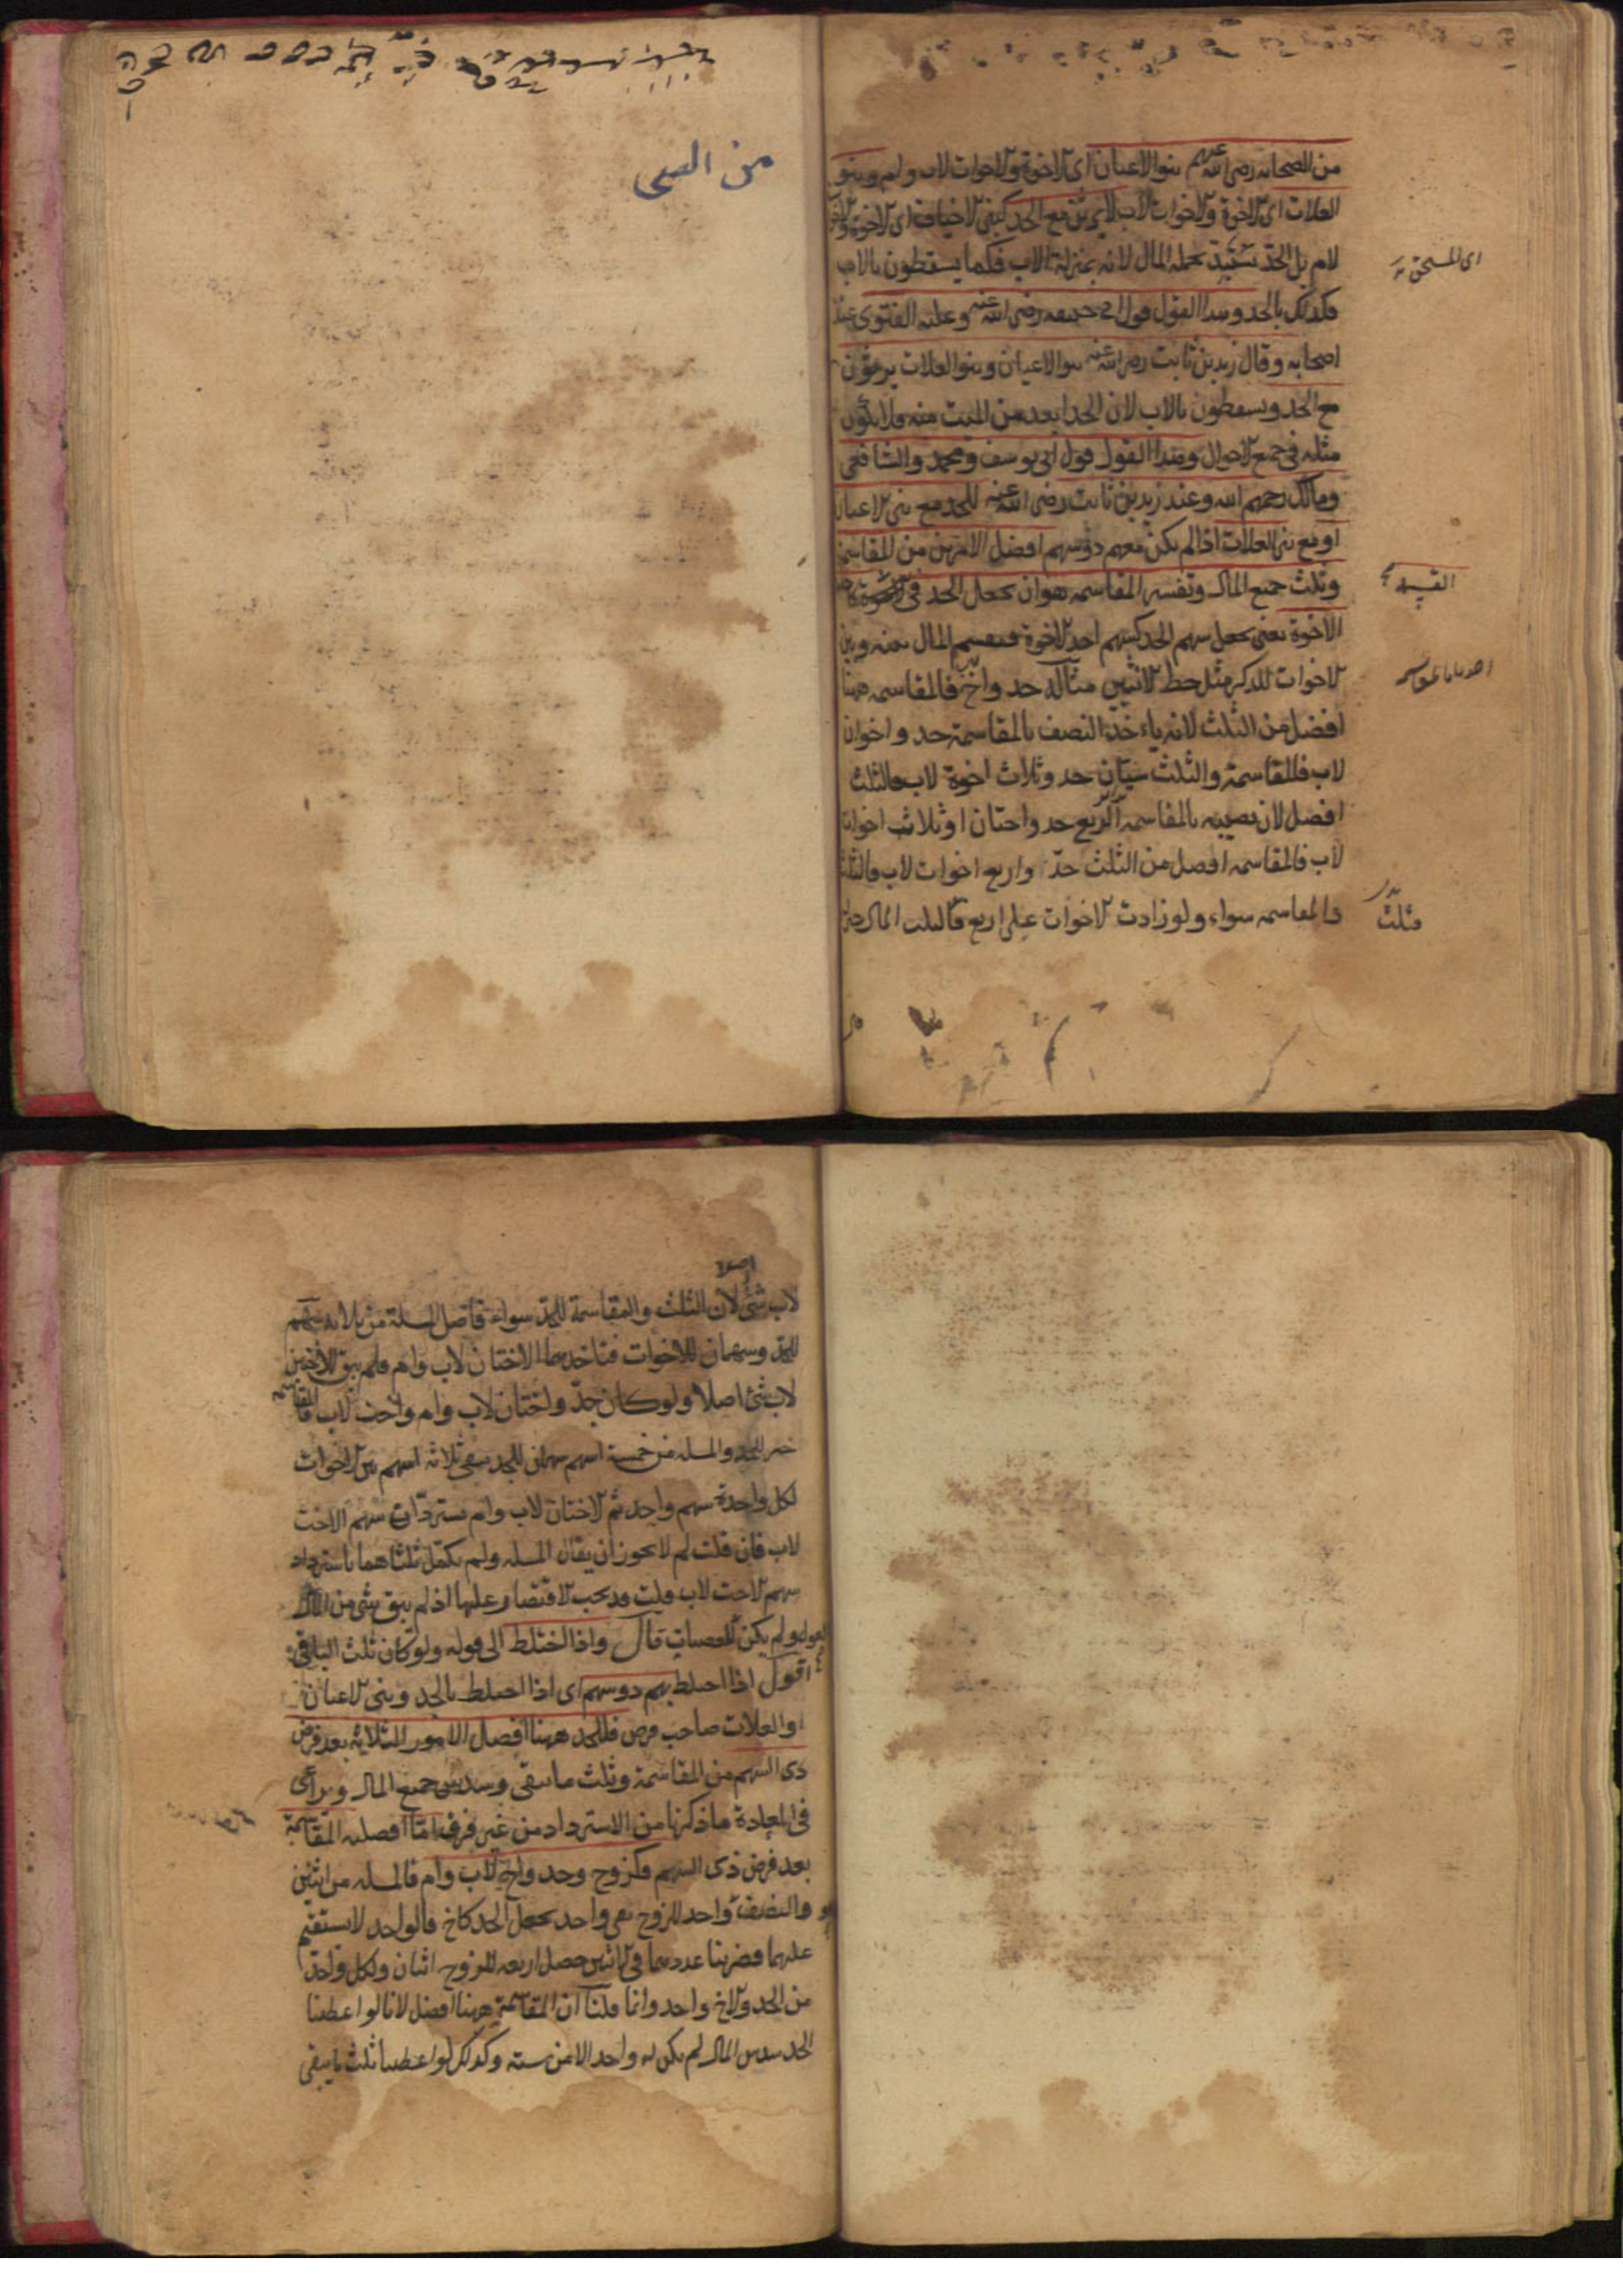 من الصحابة رضى الله عنهم بنو الاعيان اى الاخوة والاخوات لاب وام وبنو
العلات اى الاخوة والاخوات لاب لا يرثون مع الجد كبنى الاخياف اى الاخوة والاخوات
لام بل الجد يستبد بجملة المال لانه بمنزلة الاب فكما يسقطون بالاب
فكذلك بالجد وهذا القول قول ابى حنيفه رضى الله عنه وعليه الفتوى عند
اصحابه وقال زيد بن ثابت رضى الله عنه بنو الاعيان وبنو العلات يرثون
مع الجد ويسقطون بالاب لان الجد ابعد من الميت منه فلا يكون
مثله فى جميع الاحوال وهذا القول قول ابى يوسف ومحمد والشافعى
ومالك رحمهم الله وعند زيد بن ثابت رضى الله عنه للجد مع بنى الاعيان
او مع بنى العلات اذا لم يكن معهم ذو سهم افضل الامرين من المقاسمة
وثلث جميع المال وتفسير المقاسمه هو ان يجعل الجد فى القسمة كاحد
الاخوة يعنى يجعل سهم الجد كسهم احد الاخوة فيقسم المال بينه وبين
الاخوات للذكر مثل حظ الانثيين مثاله جد واخ فالمقاسمه ههنا
افضل من الثلث لانه ياءخذ النصف بالمقاسمة جد واخوان
لاب فالمقاسمة والثلث سيان جد وثلاث اخوة لاب فالثلث
افضل لان نصيبه بالمقاسمه الربع جد واختان او ثلاث اخوات
لاب فالمقاسمه افضل من الثلث جد واربع اخوات لاب فالثلث
والمقاسمه سواء ولو زادت الاخوات على اربع فالثلث
اى المستحق
القسمة
فثلث
اصلا
لاب شئ لان الثلث والمقاسمة للجد سواء فاصل المسلة من ثلاثه سهم
للجد وسهمان للاخوات فتاخذهما الاختان لاب وام فلم يبق للاختين
لاب شئ اصلا ولو كان جد واختان لاب وام واخت لاب فالمقاسمه
خير للجد والمسله من خمسة اسهم سهمان للجد يبقى ثلاثه اسهم بين الاخوات
لكل واحدة سهم واحد ثم الاختان لاب وام تستردان سهم الاخت
لاب فان قلت لم لا يجوز ان يقال المسله ولم يكمل ثلثاهما باسترداد
سهم الاخت لاب قلت قد يجب الاقتصار عليها اذ لم يبق شئ من المال
العول ولم يكن للعصبات قال واذا اختلط الى قوله ولو كان ثلث الباقى
اقول اذا اختلط بهم ذو سهم اى اذا اختلط بالجد وبنى الاعيان
او العلات صاحب فرض فللجد ههنا افضل الامور الثلاثه بعد فرض
ذى السهم من المقاسمة وثلث ما يبقى وسدس جميع المال ويراعى
فى المعادة ما ذكرنا من الاسترداد من غير فرق اما افضليه المقاسمة
بعد فرض ذى السهم فكزوج وجد واخ لاب وام فالمسله من اثنين
والنصف واحد للزوج بقى واحد يجعل الجد كاخ فالواحد لا يستقيم
عليهما فضربنا عددهما فى الاثنين حصل اربعه للزوج اثنان ولكل واحد
من الجد والاخ واحد وانما قلنا ان المقاسمة ههنا افضل لانا لو اعطينا
الجد سدس المال لم يكن له واحد الا من سته وكذلك لو اعطينا ثلث ما يبقى